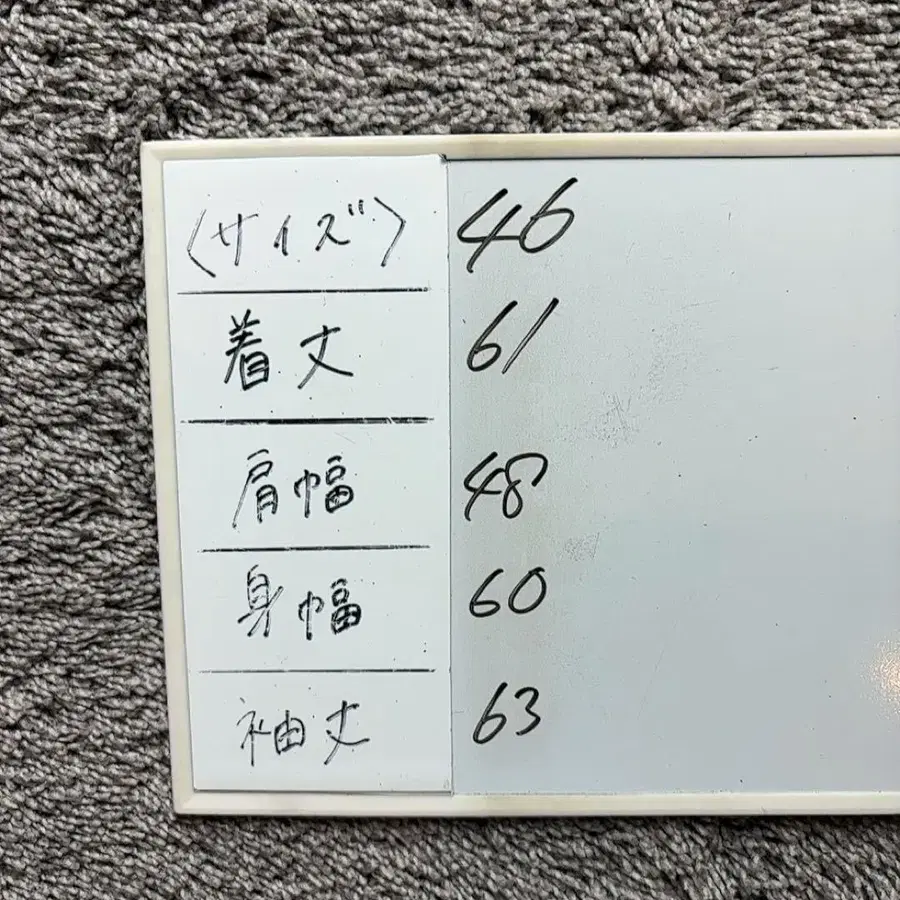 〈サイズ〉 46
着丈 61
肩幅 48
身幅 60
袖丈 63